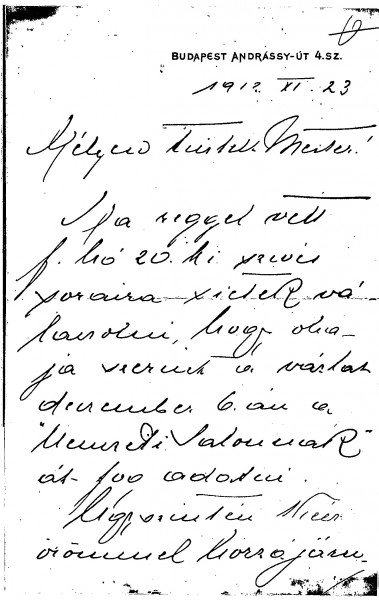 BUDAPEST ANDRÁSSY-ÚT 4.SZ.
1912 XI. 23
Mélyen tisztelt Mester!
Ma reggel vett
f. hó 20.ki szives
soraira sietek vá-
laszolni, hogy óha-
ja szerint a vázlat
december 6.án a
"Nemzeti Salonnak"
át fog adatni.
Úgyszintén
örömmel hozzájáru-